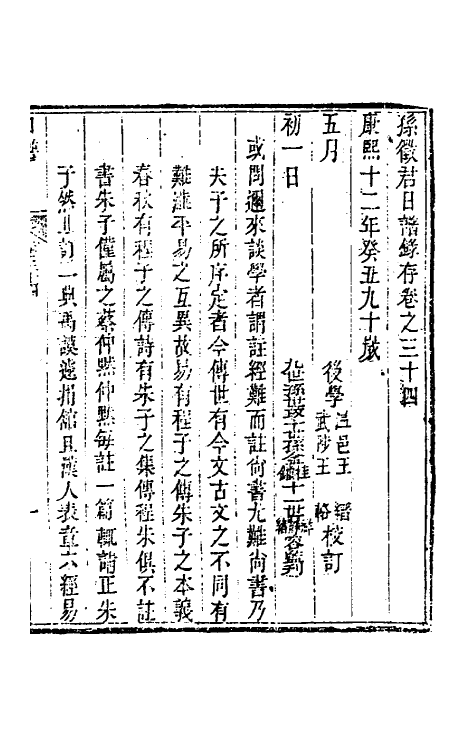 孫徵君日譜錄存卷之三十四
康熙十二年癸丑九十歲
五月
後學
邑王
武陟王輅
校訂
初一日
或問邇來談學者謂註經難而註尚書尤難尚書乃
夫子之所序定者今傳世有今文古文之不同有
難澁平易之互異故易有程子之傳朱子之本義
春秋有程子之傳詩有朱子之集傳程朱俱不註
書朱子僅屬之蔡仲黙仲黙每註一篇輒請正朱
子然止訂二典禹謨遽捐館且漢人表章六經易
一